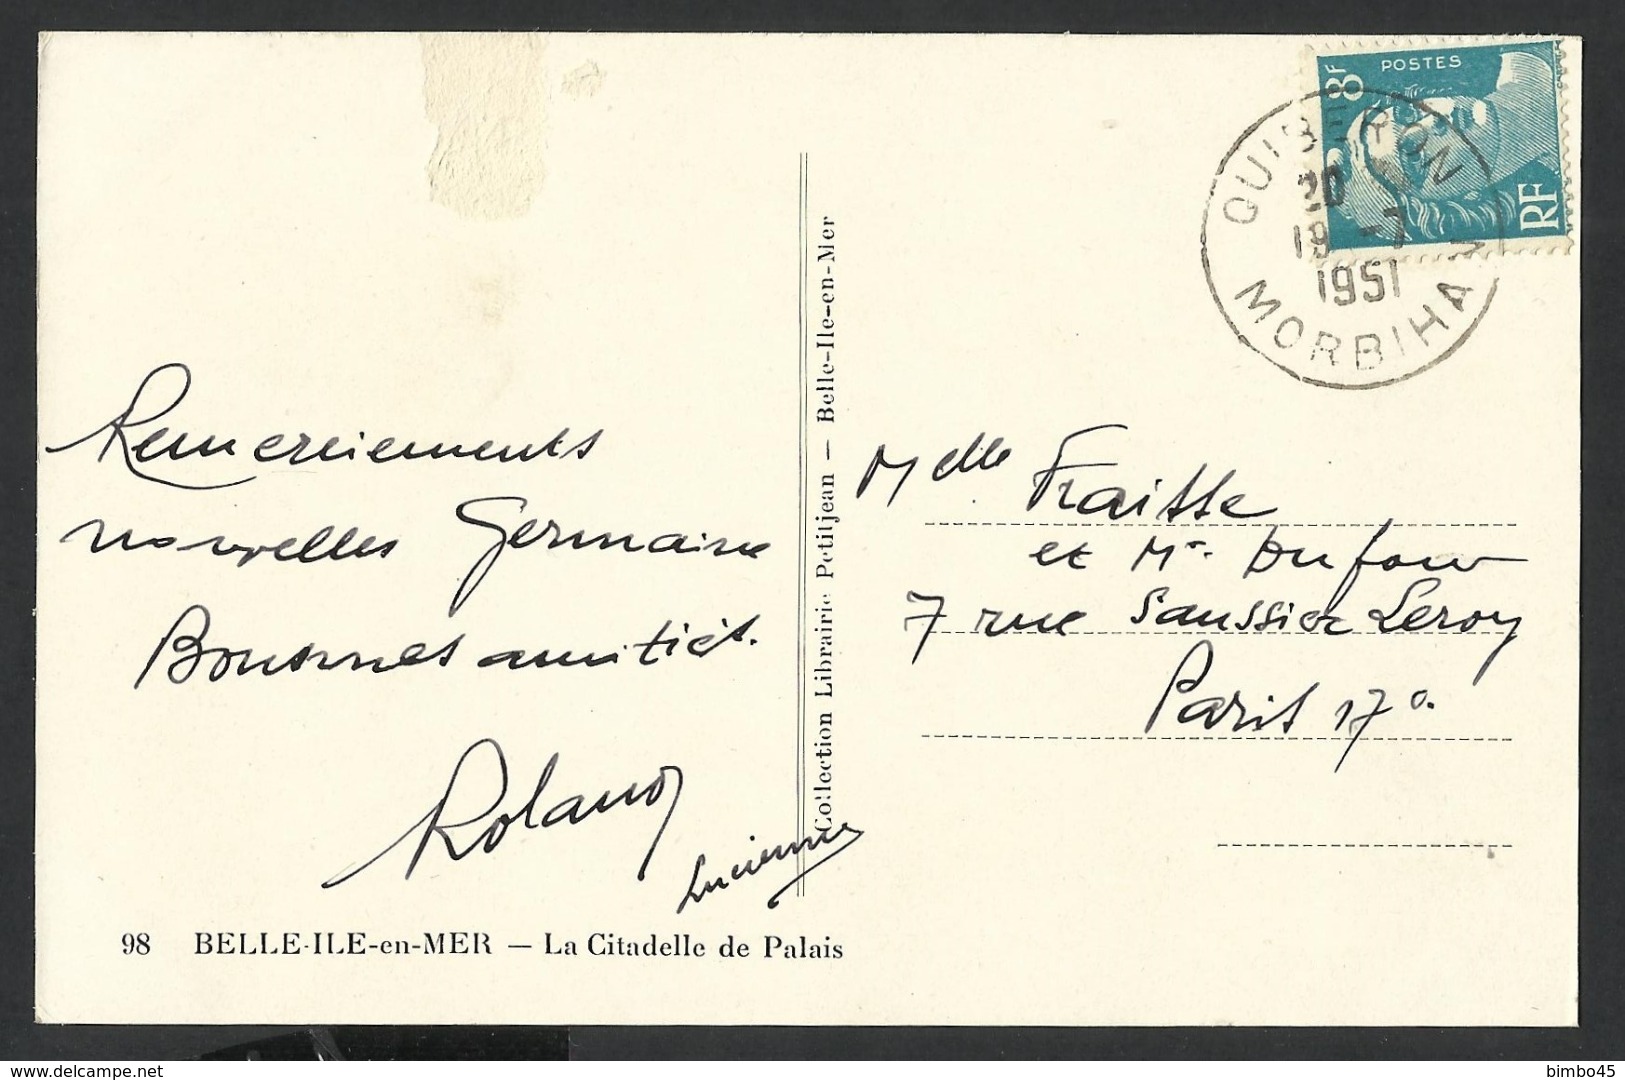 POSTES
8F
RF
QUIBERON
20
19 -7
1951
MORBIHAN
Remerciements
nouvelles Germaine
Bonnes amitiés.
Roland
Lucienne
Collection Librairie Petitjean — Belle-Ile-en-Mer
Melle Fraisse
et Mr. Dufour
7 rue Saussier Leroy
Paris 17e.
98 BELLE-ILE-en-MER — La Citadelle de Palais
www.delcampe.net
bimbo45